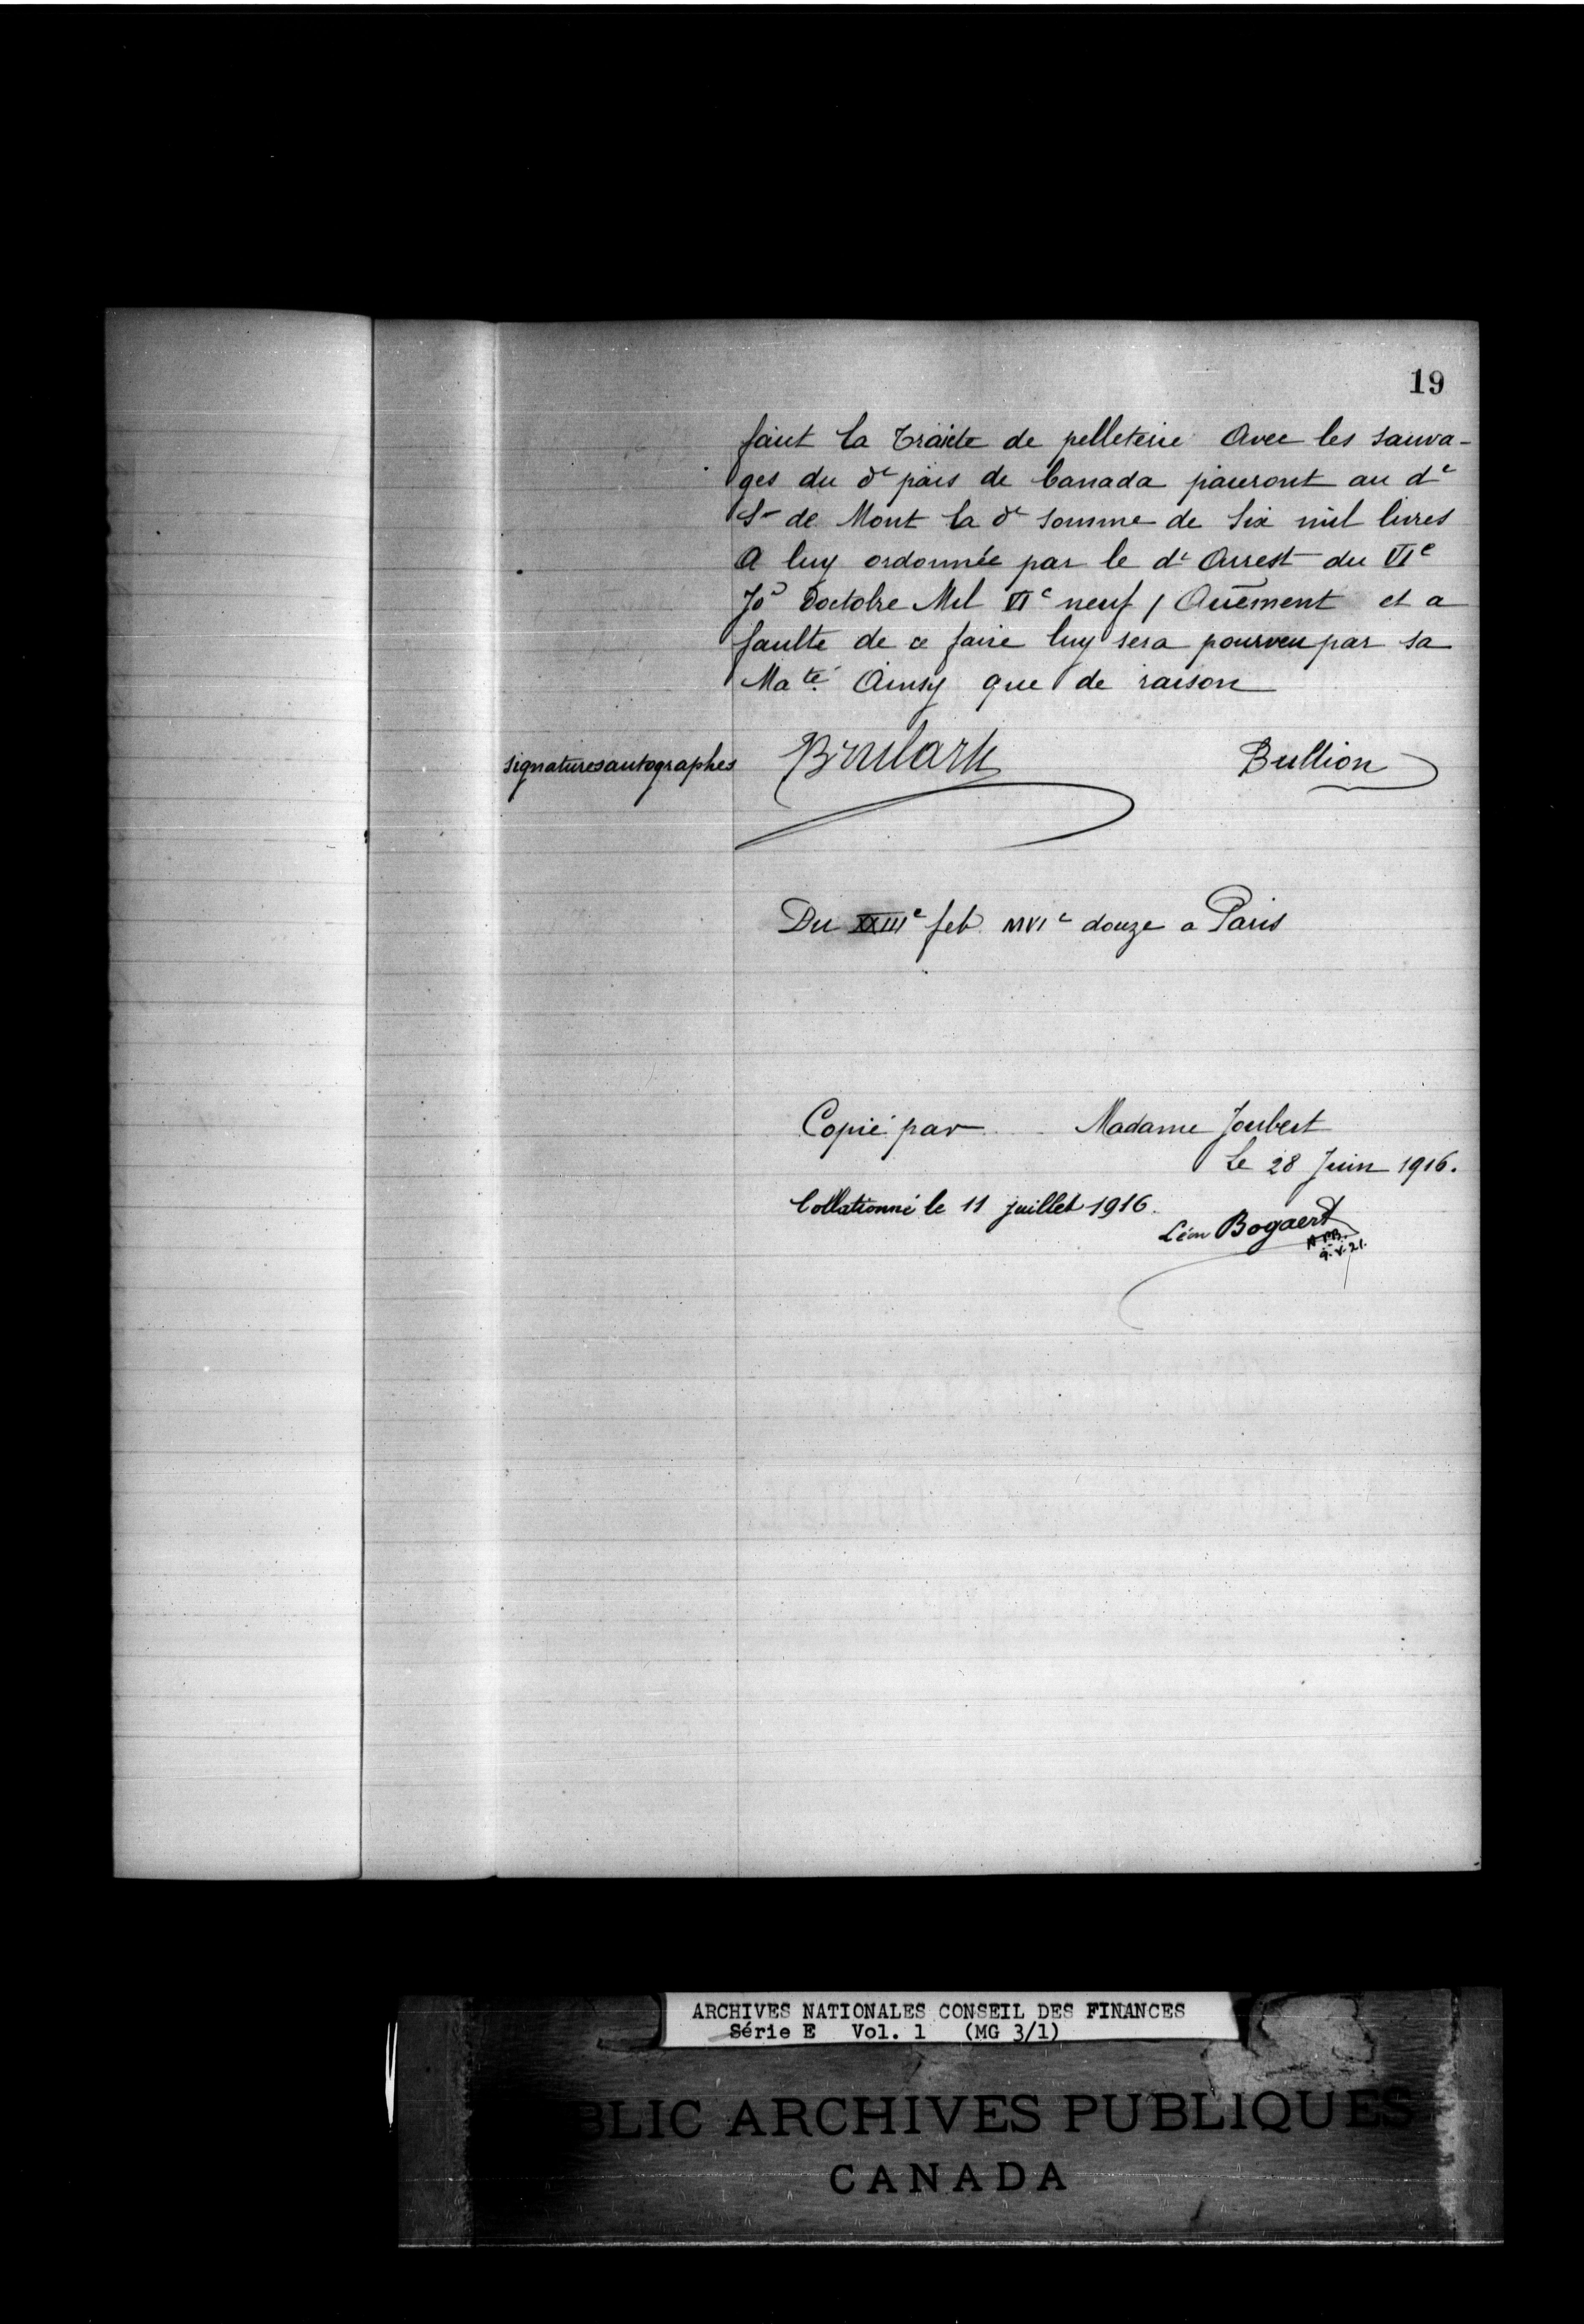 19
faict la traicte de pelleterie Avec les sauva-
ges du dt païs de Canada païeront au dt
Sr de Mont la dt somme de Six mil livres
A luy ordonnée par le dt Arrest du VIe
Jor Doctobre Mil VIc neuf / Aūement et a
faulte de ce faire luy sera pourveu par sa
Maté Ainsy que de raison
signatures autographes Brulart Bullion
Du XXIIIe feb MVIc douze a Paris
Copié par Madame Joubert
Le 28 Juin 1916.
Collationné le 11 juillet 1916.
Léon Bogaert
9.V.21.
ARCHIVES NATIONALES CONSEIL DES FINANCES
Série E Vol. 1 (MG 3/1)
BLIC ARCHIVES PUBLIQUES
CANADA